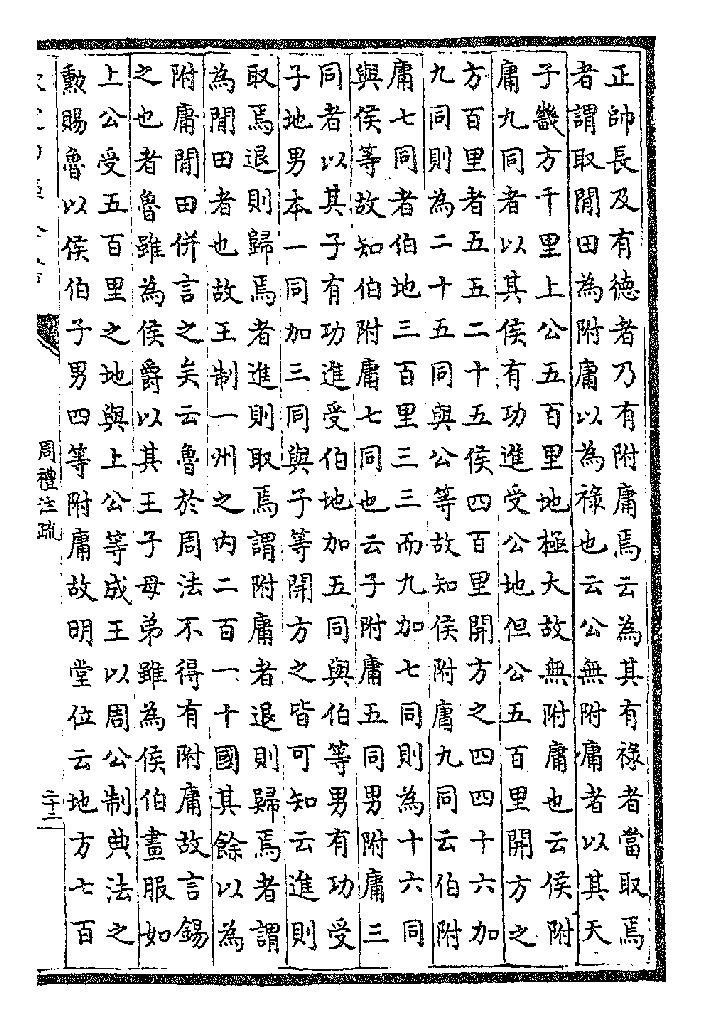 正帥長及有德者乃有附庸焉云為其有祿者當取焉
者謂取閒田為附庸以為祿也云公無附庸者以其天
子畿方千里上公五百里地極大故無附庸也云侯附
庸九同者以其侯有功進受公地但公五百里開方之
方百里者五五二十五侯四百里開方之四四十六加
九同則為二十五同與公等故知侯附庸九同云伯附
庸七同者伯地三百里三三而九加七同則為十六同
與侯等故知伯附庸七同也云子附庸五同男附庸三
同者以其子有功進受伯地加五同與伯等男有功受
子地男本一同加三同與子等開方之皆可知云進則
取焉退則歸焉者進則取焉謂附庸者退則歸焉者謂
為閒田者也故王制一州之内二百一十國其餘以為
附庸閒田併言之矣云魯於周法不得有附庸故言錫
之也者魯雖為侯爵以其王子母弟雖為侯伯畫服如
上公受五百里之地與上公等成王以周公制典法之
勲賜魯以侯伯子男四等附庸故明堂位云地方七百
周禮注疏